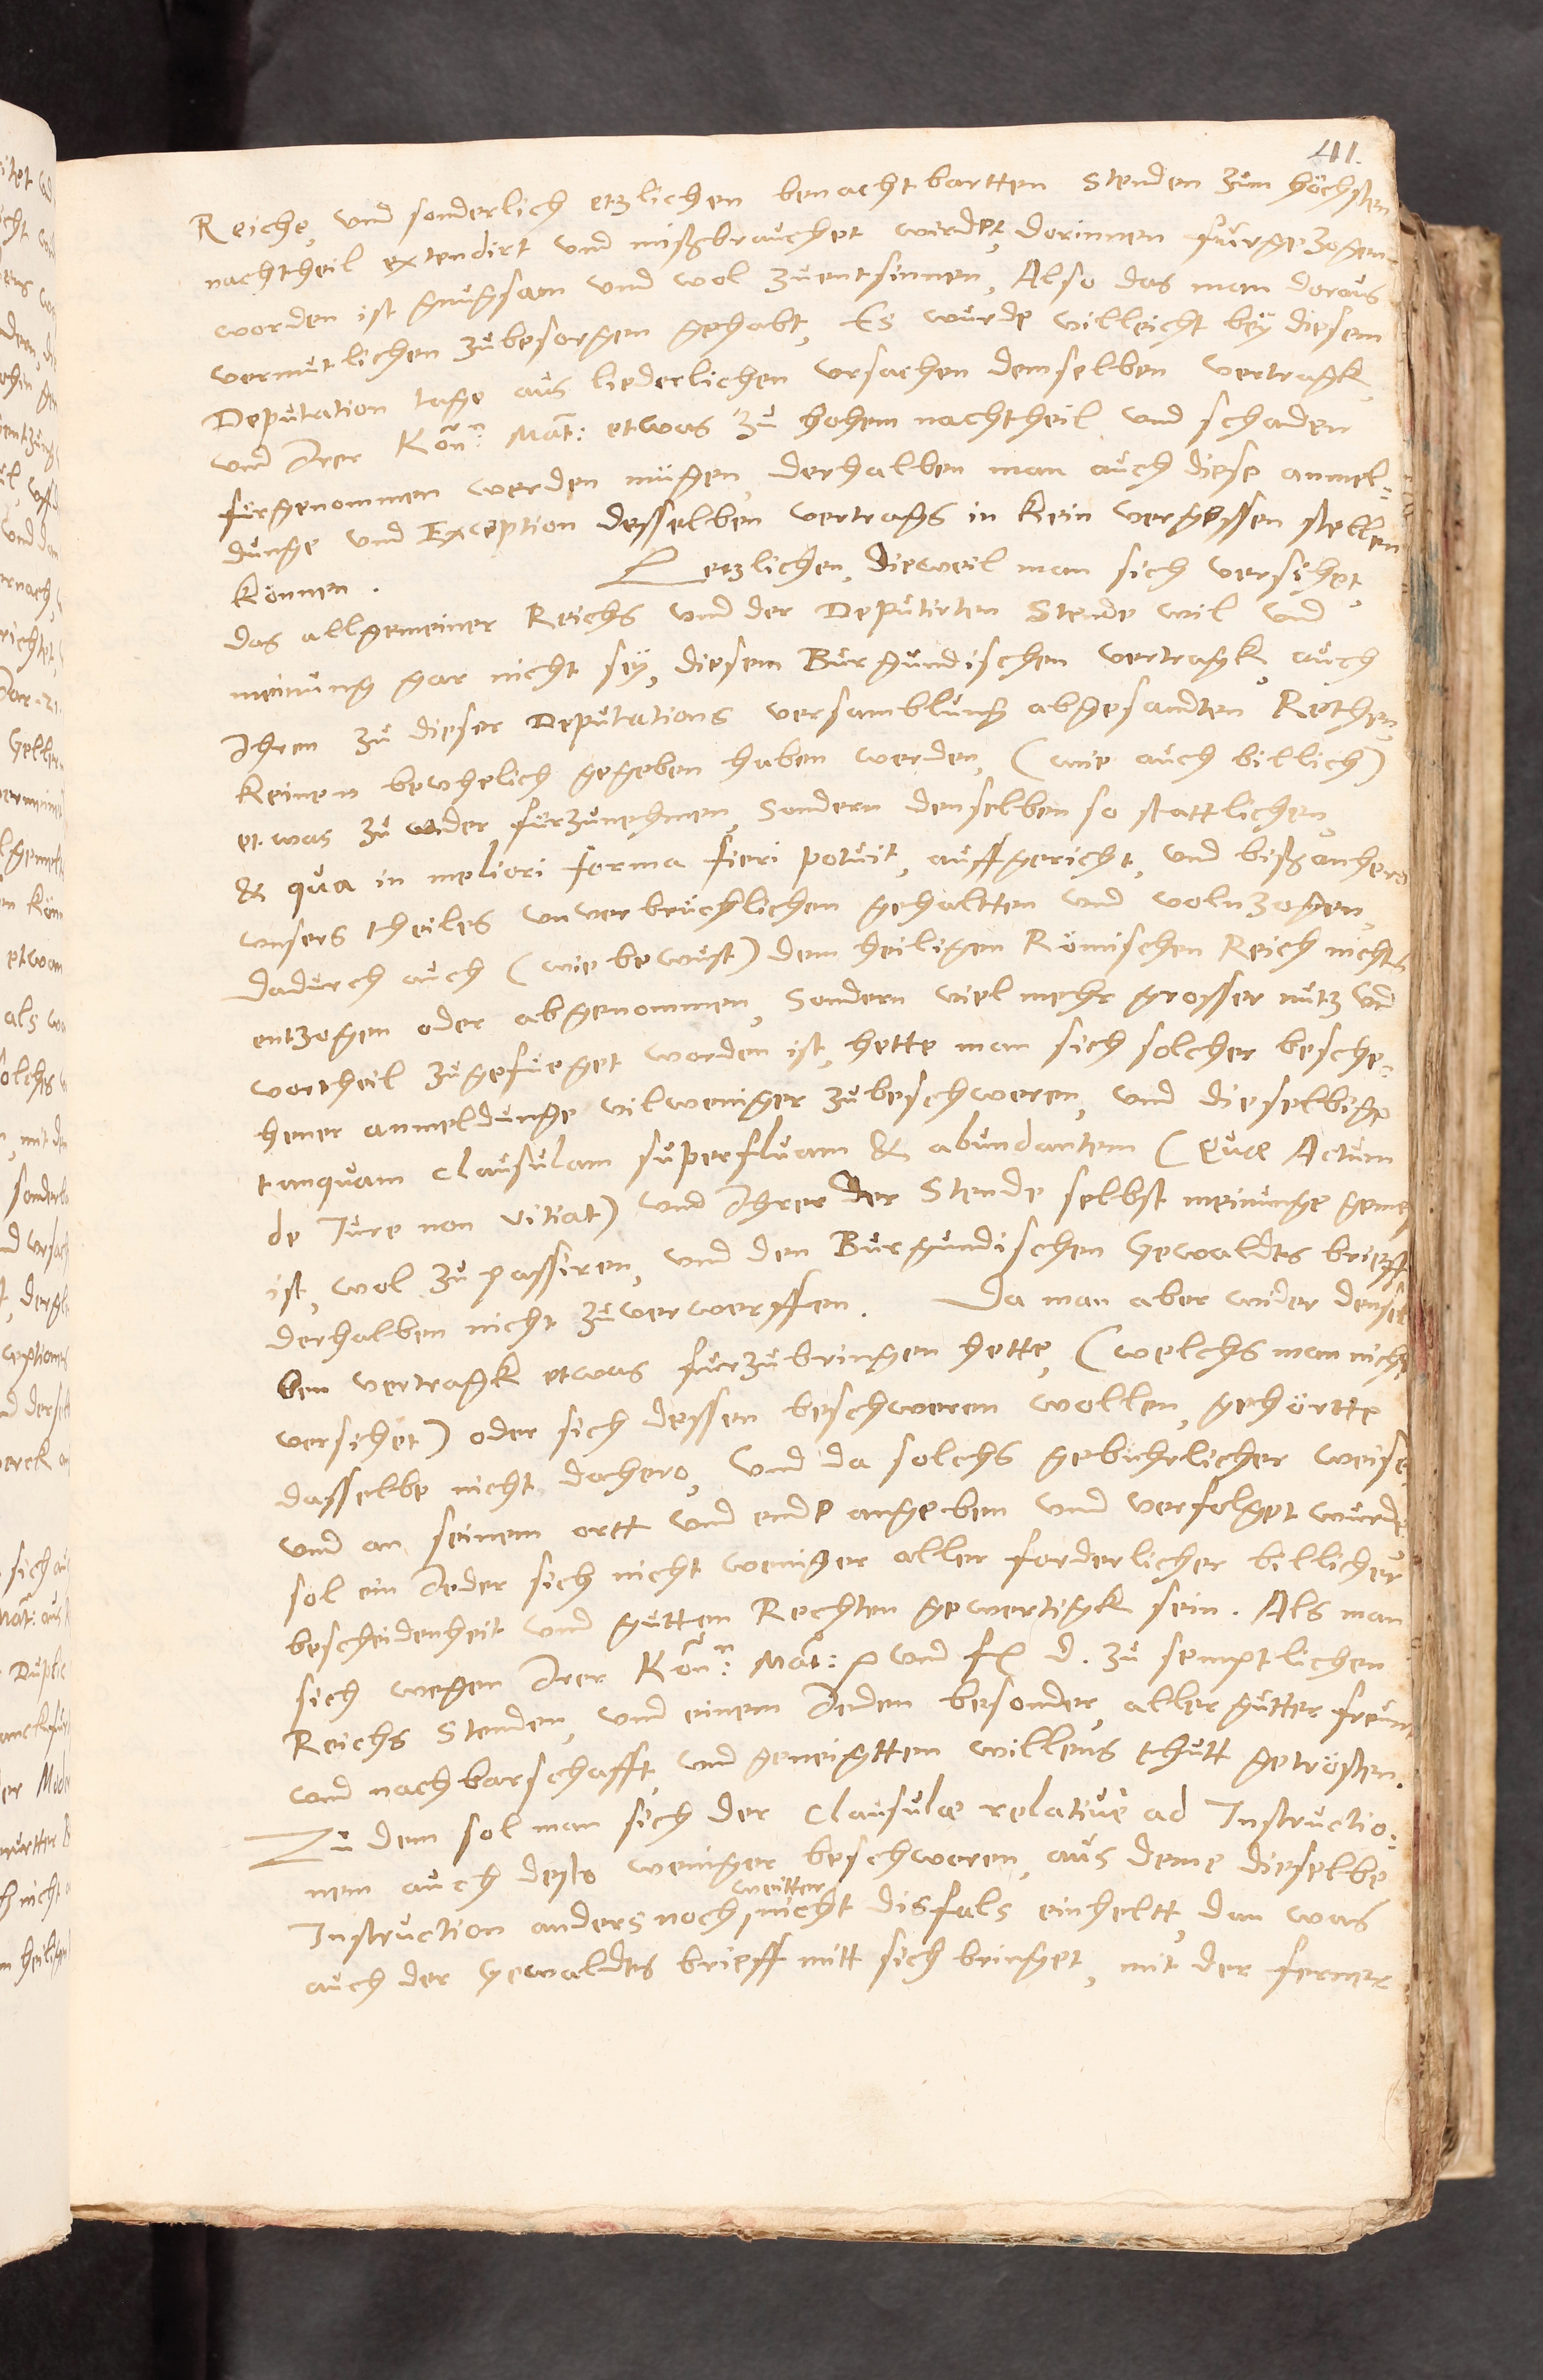 411.
Reiche, und sonderlich etzlichen benachtbartten Stenden zum höchsten
nachtheil extendirt und mißbrauchet wirdet, dorinnen fürgezogen
worden ist gnugsam und wol zuentsinnen, Also das man doraus
vermutlichen zubesorgen gehabt, Es wurde villeicht bey diesem
Deputation tage aus liederlichen ursachen demselben vertragk,
und Irer Kön:ⁿ Mat: etwas zu hohem nachtheil und schaden
fürgenommen werden mügen, derhalben man auch diese anmel-
dunge und Exception desselben vertrags in kein vergessen stellen
können. Letzlichen, dieweil man sich versihet,
das allgemeiner Reichs und der Deputirten Stende wil und
meinung gar nicht sey, diesem Burgundischen vertragk, auch
Ihren zu dieser Deputations versamblung abgesandten Rethen,
keinen bevhelich gegeben haben werden, (wie auch billich)
etwas zu wider fürzunehmen, Sondern denselben so stattlichen,
& qua in meliori forma fieri potuit, auffgericht, und bißanhero
unsers theiles unverbrüchlichen gehaltten und volnzogen,
dadurch auch (wie bewust) dem heiligen Römischen Reich nichts
entzogen oder abgenommen, Sondern viel mehr grosser nutz und
vortheil zugefüeget worden ist, hette man sich solcher besche-
hener anmeldunge vilweniger zubeschweren, und dieselbige
tanquam clausulam superfluam & abundantem (Quæ Actum
de Iure non vitiat) und Ihrer der Stende selbst meinunge gemeß
ist, wol zu passiren, und den Burgundischen Gewaldts brieff
derhalben nicht zuverwerffen. Da man aber wider densel
ben vertragk etwas fürzubringen hette, (welchs man nicht
versihet) oder sich dessen beschweren wollen, gehörtte
dasselbe nicht dahero, Und da solchs gebührlicher weise
und an seinem ortt und ende angeben und verfolget wurde
sol ein Jeder sich nicht weniger aller forderlicher billicher
bescheidenheit und gutten Rechten gewertigk sein. Als man
sich wegen Irer Kön:ⁿ Mat: und f. d. zu semptlichen
Reichs Stenden, und einem Jeden besonder, aller gutter freund
und nachbarschafft, und geneigttem willens thutt getrösten.
Zu dem sol man sich der Clausulæ relativè ad Instructio-
nem auch desto weniger beschweren, aus deme dieselbe
weitter
Instruction anders noch nicht disfals einheltt, dan was
auch der Gewaldts brieff mitt sich bringet, mit der ferner